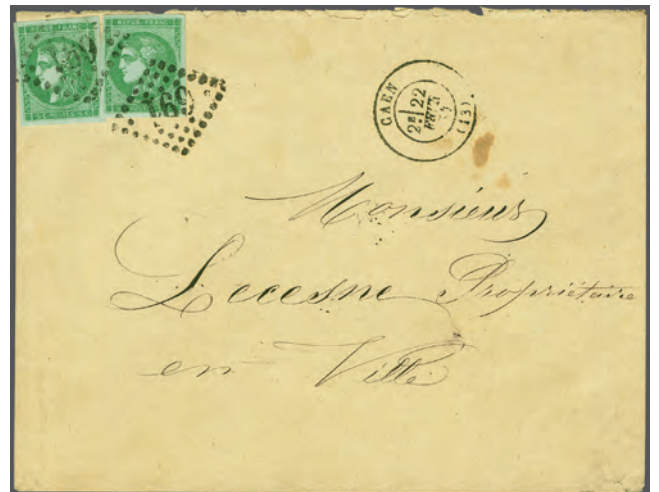 REPUB. FRANC.
REPUB. FRANC.
691
CAEN
22
(13)
Monsieur
Lecesne Propriétaire
en Ville